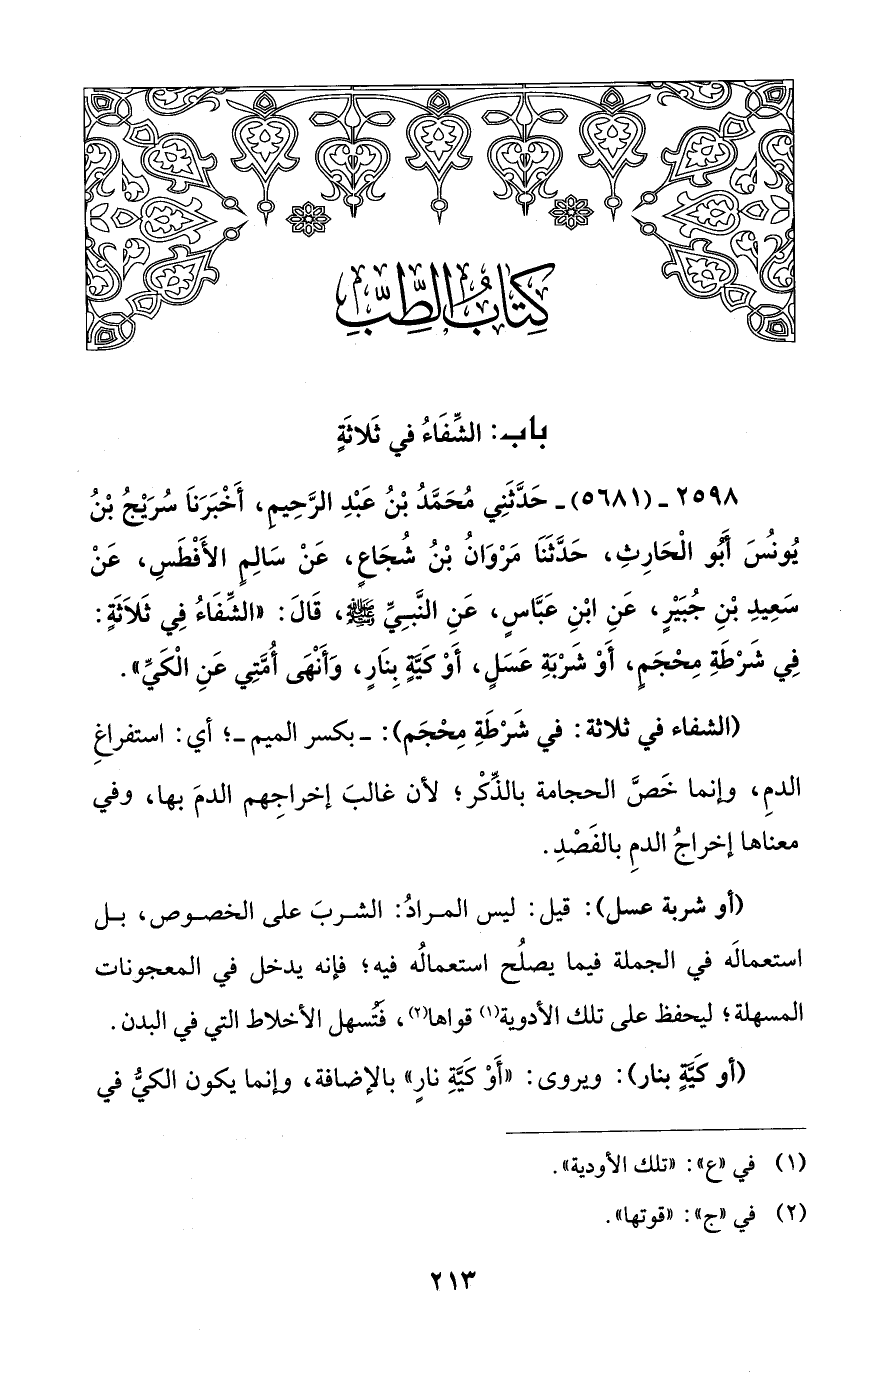 كِتَابُ الطِّبِّ
باب: الشِّفَاءُ في ثَلاثَةٍ
٢٥٩٨ ـ (٥٦٨١) ـ حَدَّثَنِي مُحَمَّدُ بْنُ عَبْدِ الرَّحِيمِ، أَخْبَرَنَا سُرَيْجُ بْنُ
يُونُسَ أَبُو الْحَارِثِ، حَدَّثَنَا مَرْوَانُ بْنُ شُجَاعٍ، عَنْ سَالِمٍ الأَفْطَسِ، عَنْ
سَعِيدِ بْنِ جُبَيْرٍ، عَنِ ابْنِ عَبَّاسٍ، عَنِ النَّبِيِّ ﷺ، قَالَ: «الشِّفَاءُ فِي ثَلَاثَةٍ:
فِي شَرْطَةِ مِحْجَمٍ، أَوْ شَرْبَةِ عَسَلٍ، أَوْ كَيَّةٍ بِنَارٍ، وَأَنْهَى أُمَّتِي عَنِ الْكَيِّ».
(الشفاء في ثلاثة: في شَرْطَةِ مِحْجَم): ـ بكسر الميم ـ؛ أي: استفراغِ
الدمِ، وإنما خَصَّ الحجامة بالذِّكْر؛ لأن غالبَ إخراجِهم الدمَ بها، وفي
معناها إخراجُ الدمِ بالفَصْدِ.
(أو شربة عسل): قيل: ليس المرادُ: الشربَ على الخصوص، بل
استعمالَه في الجملة فيما يصلُح استعمالُه فيه؛ فإنه يدخل في المعجونات
المسهلة؛ ليحفظ على تلك الأدوية(١) قواها(٢)، فَتُسهل الأخلاط التي في البدن.
(أو كَيَّةٍ بنار): ويروى: «أَوْ كَيَّةِ نارٍ» بالإضافة، وإنما يكون الكيُّ في
(١) في «ع»: «تلك الأودية».
(٢) في «ج»: «قوتها».
٢١٣